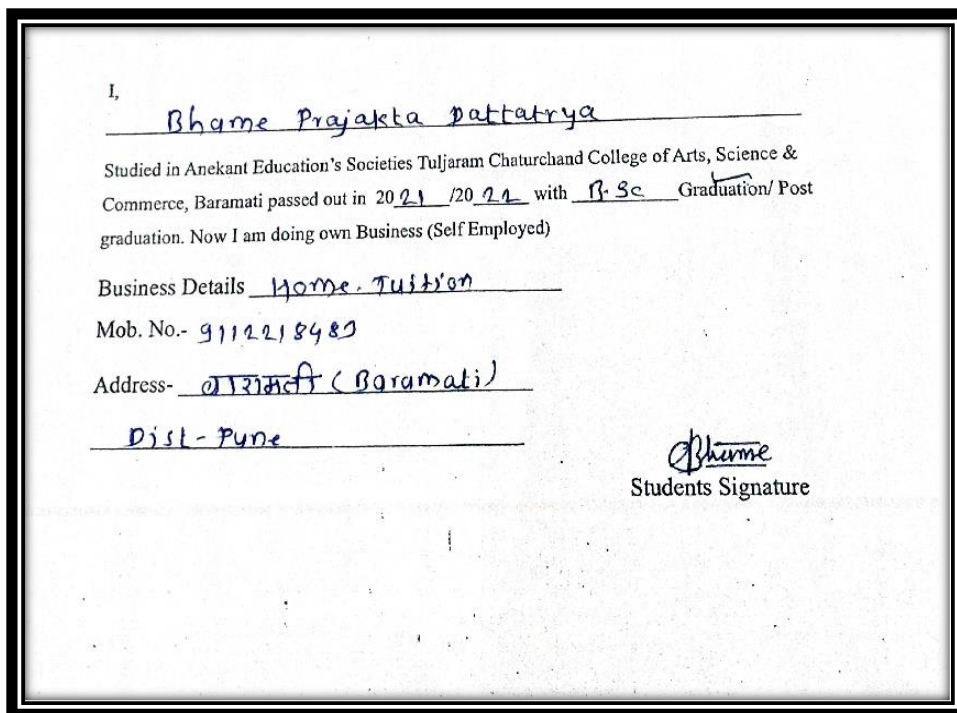 I,
Bhame Prajakta Dattatrya
Studied in Anekant Education's Societies Tuljaram Chaturchand College of Arts, Science &
Commerce, Baramati passed out in 2021 /2022 with B.Sc Graduation/ Post
graduation. Now I am doing own Business (Self Employed)
Business Details Home. Tuition
Mob. No.- 9112218489
Address- बारामती (Baramati)
Dist - Pune
Bhame
Students Signature